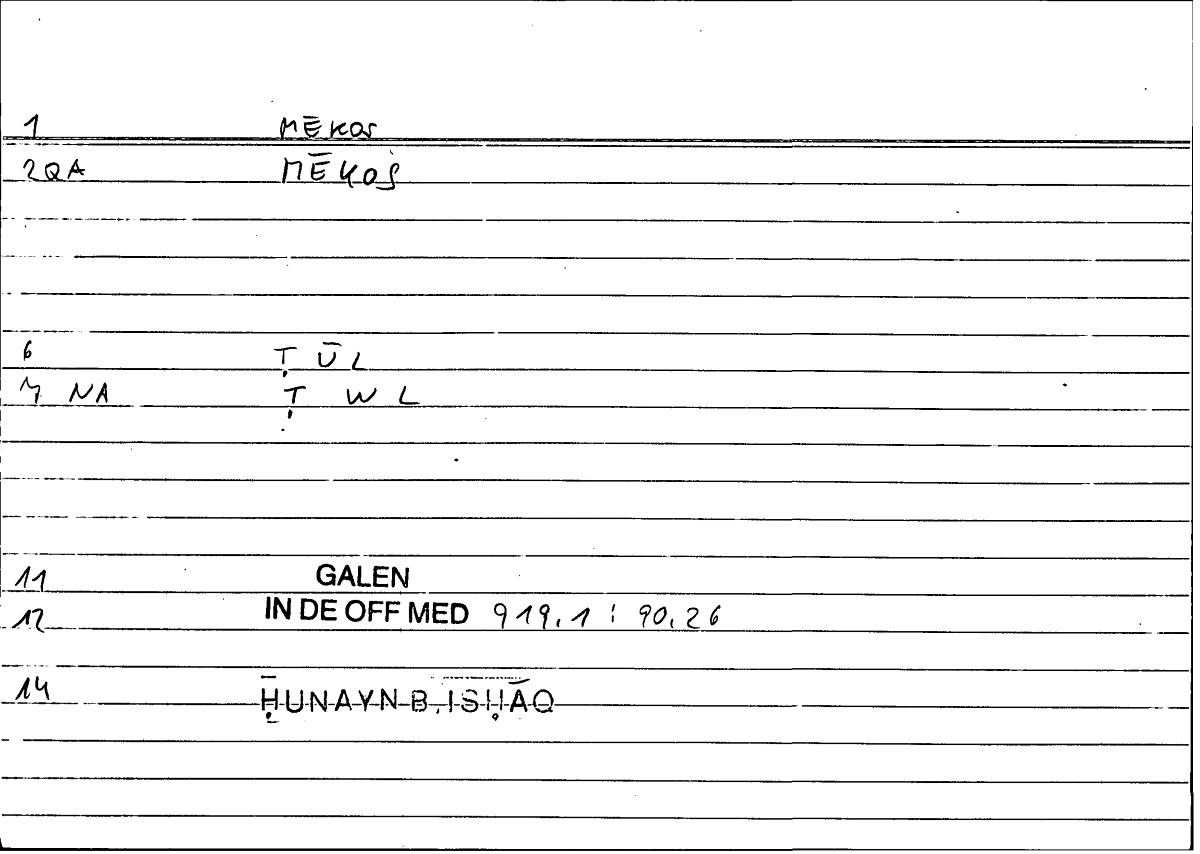 1 MĒKOS
2QA MĒKOS
6 ṬŪL
7 NA Ṭ W L
11 GALEN
12 IN DE OFF MED 919,1 : 90,26
14 ḤUNAYN B. ISḤĀQ